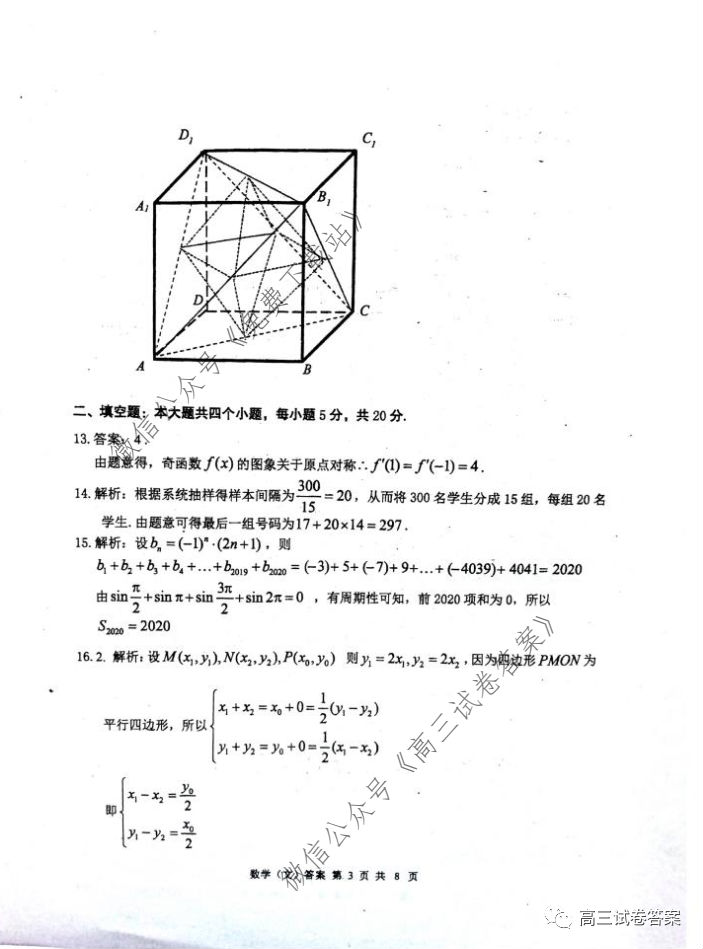 D₁
C₁
A₁
B₁
D
C
A
B
二、填空题：本大题共四个小题，每小题 5 分，共 20 分.
13.答案：4.
由题意得，奇函数 f(x) 的图象关于原点对称∴f′(1)=f′(−1)=4.
14.解析：根据系统抽样得样本间隔为 300/15 = 20，从而将 300 名学生分成 15 组，每组 20 名
学生.由题意可得最后一组号码为17+20×14=297.
15.解析：设 bₙ=(−1)ⁿ·(2n+1)，则
b₁+b₂+b₃+b₄+…+b₂₀₁₉+b₂₀₂₀=(−3)+5+(−7)+9+…+(−4039)+4041=2020
由 sin π/2 + sin π + sin 3π/2 + sin 2π = 0 ，有周期性可知，前 2020 项和为 0，所以
S₂₀₂₀ = 2020
16.2. 解析：设 M(x₁,y₁),N(x₂,y₂),P(x₀,y₀) 则 y₁=2x₁,y₂=2x₂，因为四边形 PMON 为
平行四边形，所以 { x₁+x₂=x₀+0=1/2(y₁−y₂)
y₁+y₂=y₀+0=1/2(x₁−x₂)
即 { x₁−x₂=y₀/2
y₁−y₂=x₀/2
数学（文）答案 第 3 页 共 8 页
微信公众号《免费下载站》
微信公众号《高三试卷答案》
高三试卷答案